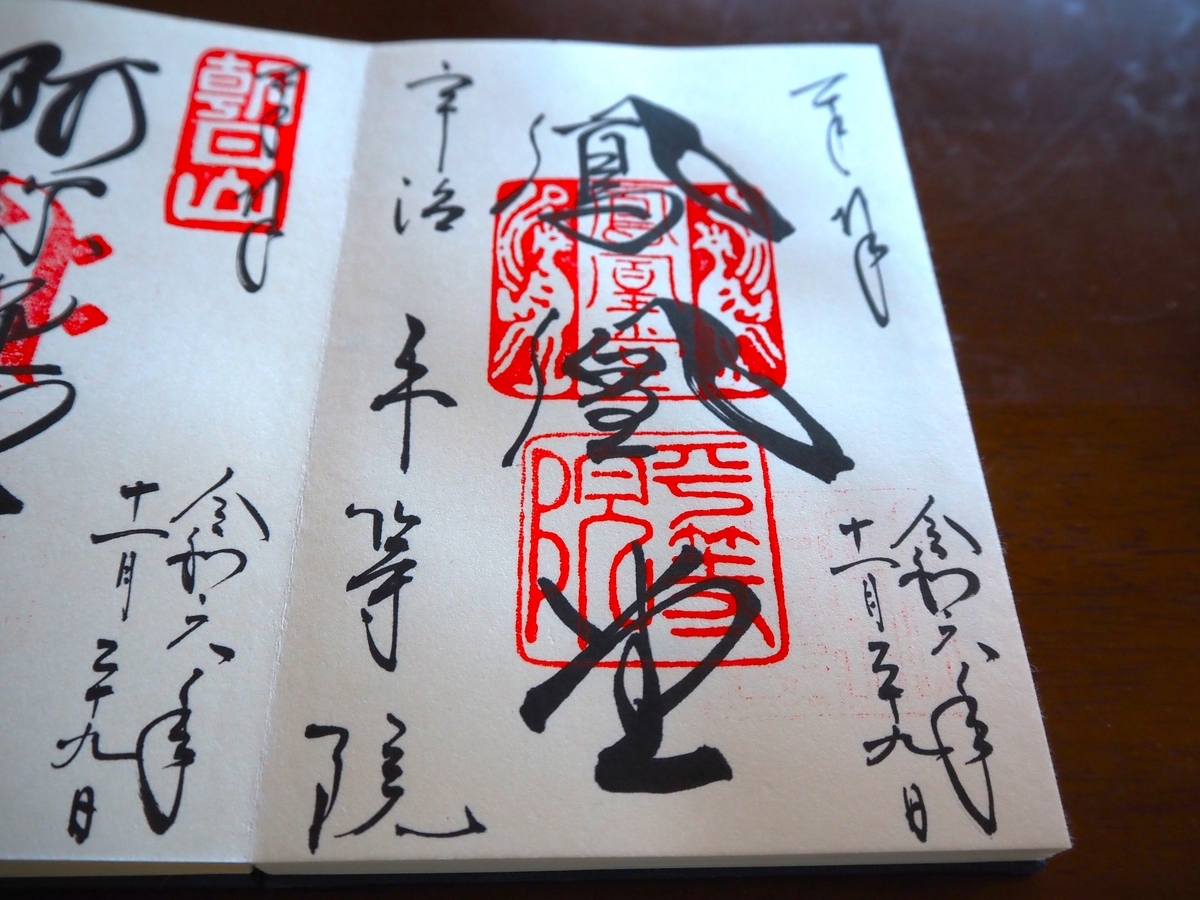 奉拝
令和六年
十一月二十九日
鳳凰堂
鳳凰堂
平等院
宇治 平等院
奉拝
朝日山
令和六年
十一月二十九日
阿弥陀